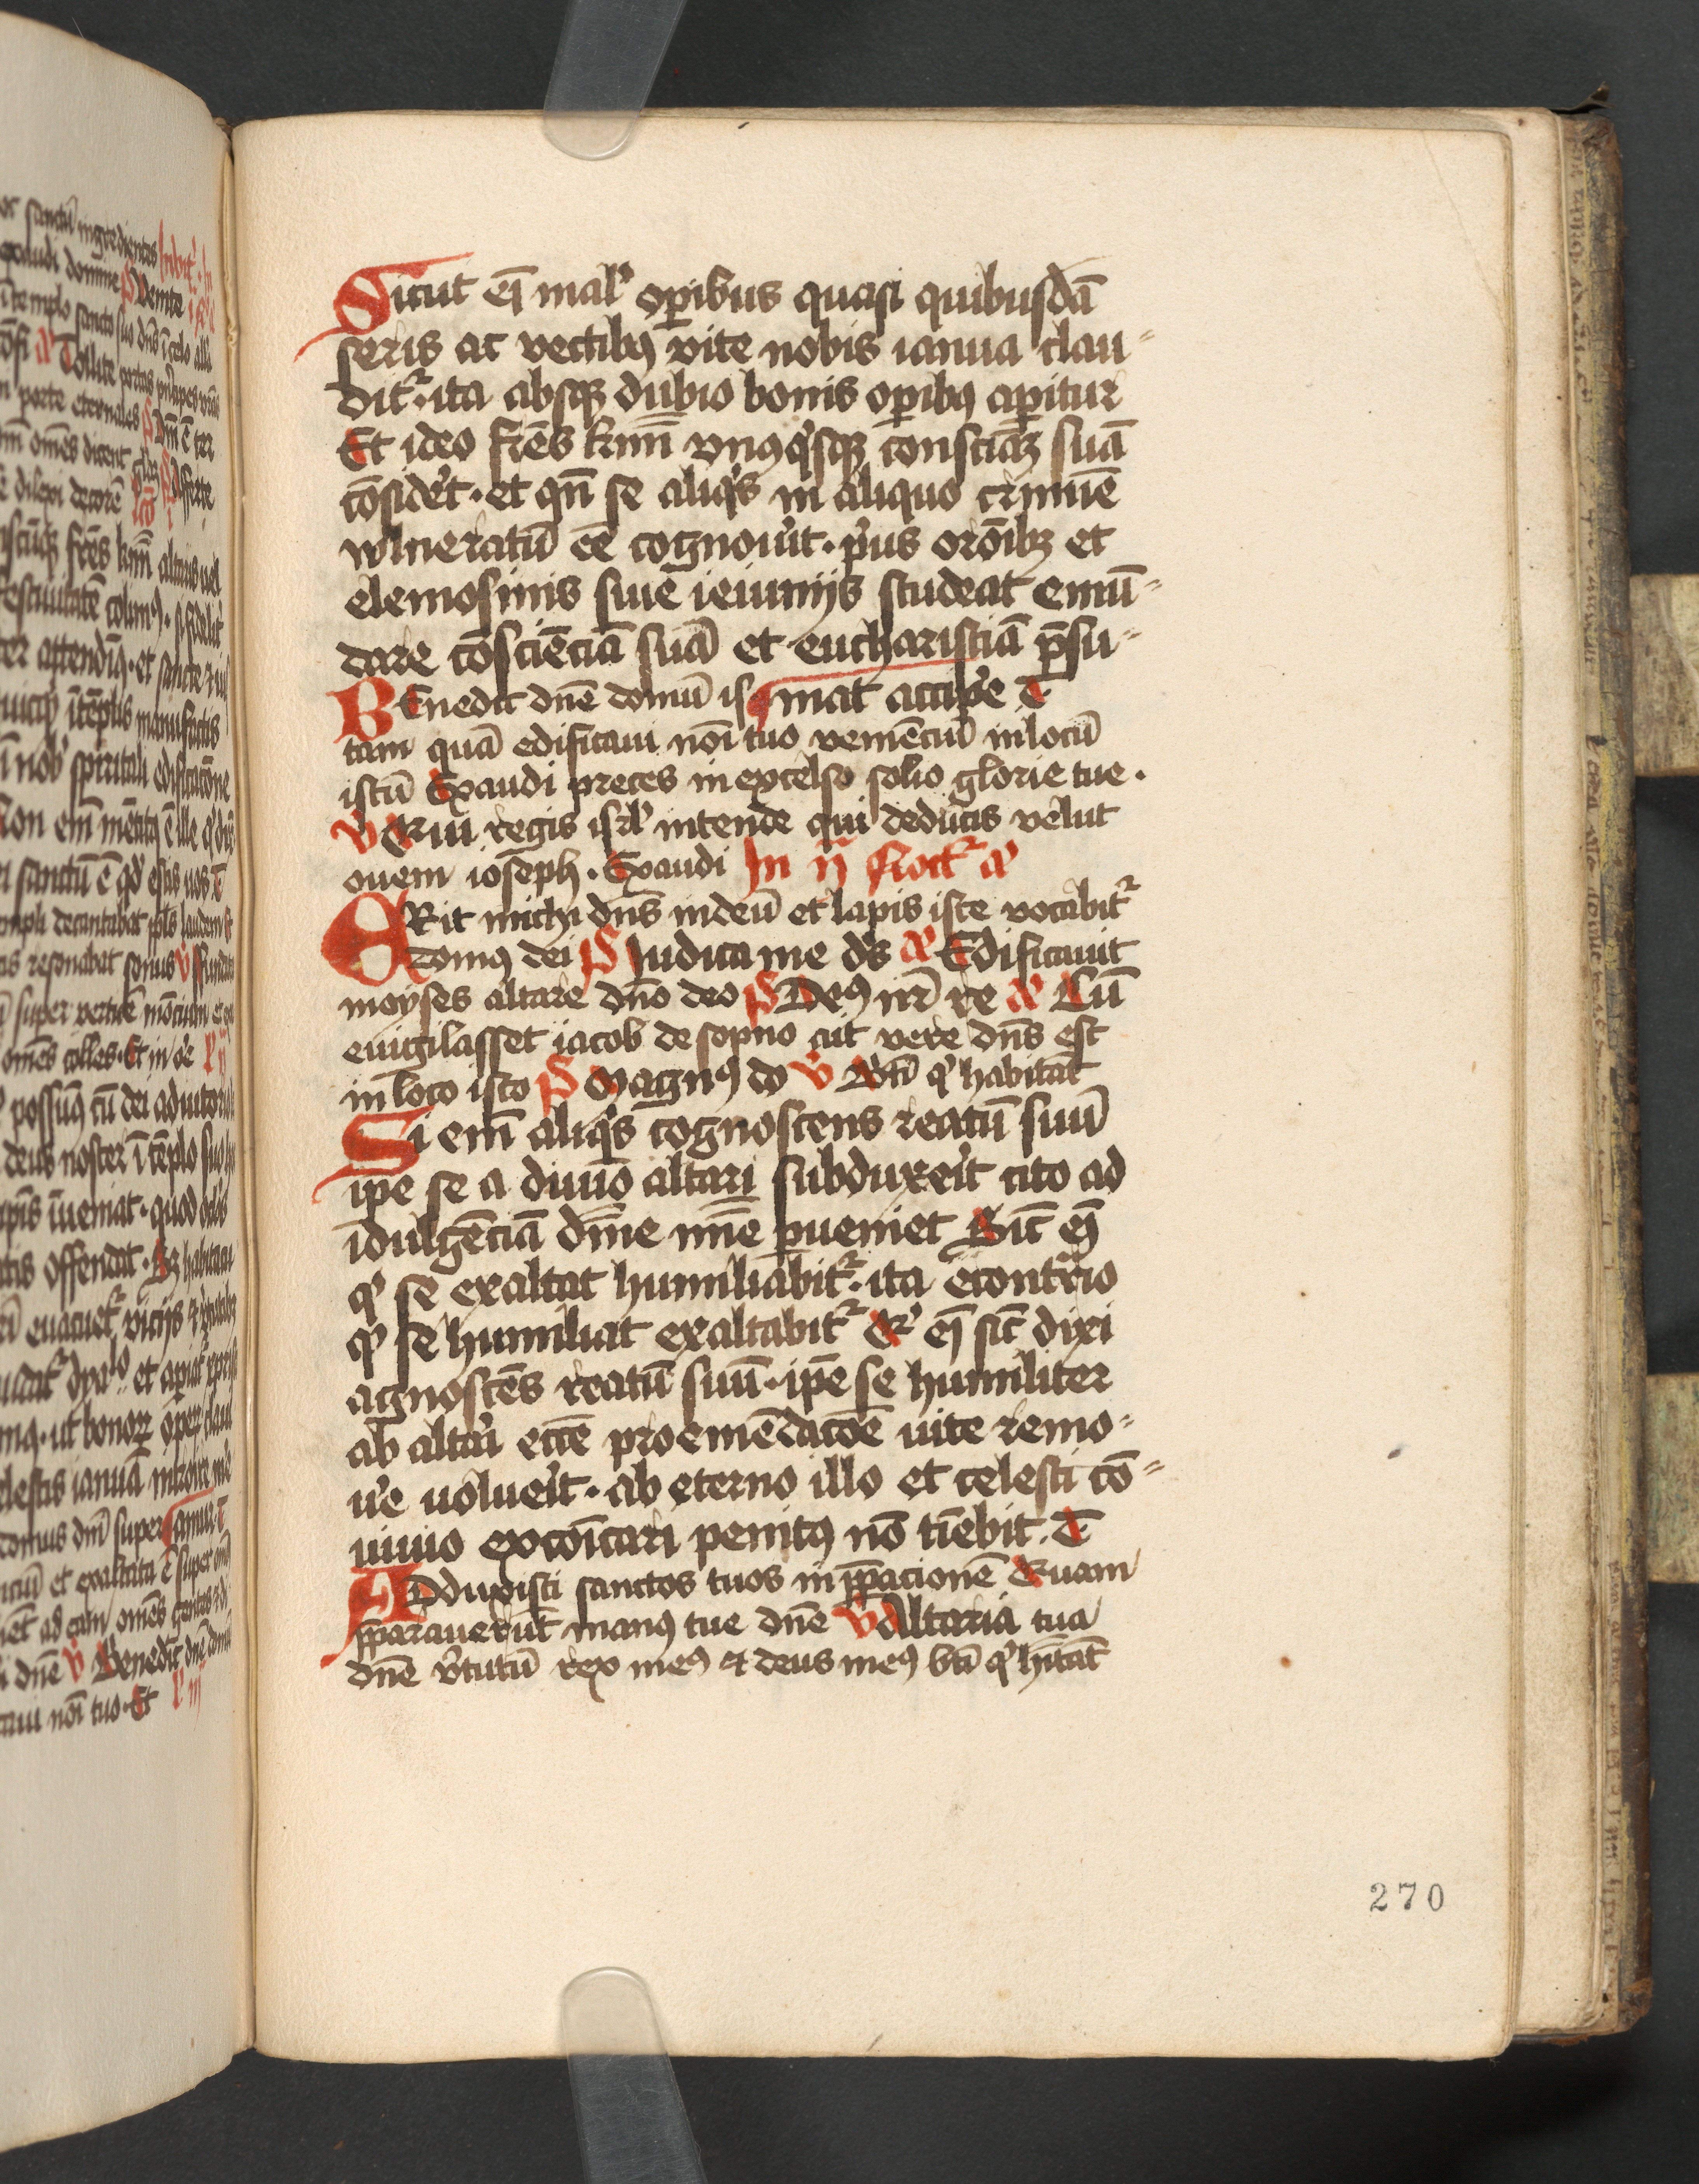 Sicut em̄ malꝭ oꝑibus quasi quibusdā
seris ac vectibꝰ vite nobis ianua clau-
dit᷑· ita absqꝫ dubio bonis oꝑibꝰ aꝑitur
Et ideo fr̄es kmī vnꝰqͥsqꝫ consciāꝫ suā
cōsidēt · et qn̄ se aliqͥs in aliquo crimīe
wlneratū ēē cognouͥit · pͥus orōībꝫ et
elemosinis siue ieiunijs studeat emū-
dare cōsciēciā suā et eucharistiā p̄su-
BEnedic dn̄e domū is mat accipͤe T
tam quā edificaui noī tuo veniēciū in locū
istū Exaudi preces in excelso solio glorie tue .
V Qui regis isrl̓ intende qui deducis velut
ouem ioseph . Exaudi In ij Noct᷑ a
ERit michi dn̄s in deū et lapis iste vocabit᷑
domꝰ dei P Iudica me ds̄ a Edificauit
moyses altare dn̄o deo P Deꝰ nr̄ re a Cū
euigilasset iacob de sopno ait vere dn̄s est
in loco isto P Magnꝰ do V Bt̄i qͥ habitāt
Si em̄ aliqͥs cognoscens reatū suū
ipe se a diuīo altari subduxeͥt cito ad
īdulgēciā dīne mīe ꝑueniet Sic̄ em̄
qͥ se exaltat humiliabit᷑· ita econtrͥio
qͥ se humiliat exaltabit᷑ Qͥ em̄ sic̄ dixi
agnoscēs reatū suū · ip̄e se humiliter
ab altaͥi ecc̄e pro emēdacōe uite remo-
uͤe uolueͥt · ab eterno illo et celesti cō-
uiuio excōicari penitꝰ nō tīebit . T
ADduxisti sanctos tuos in p̄ꝑacionē Quam
p̄ꝑauerūt manꝰ tue dn̄e V Altaria tua
dn̄e vͥtutū rex meꝰ ⁊ deus meꝰ bt̄i qͥ hītāt
270